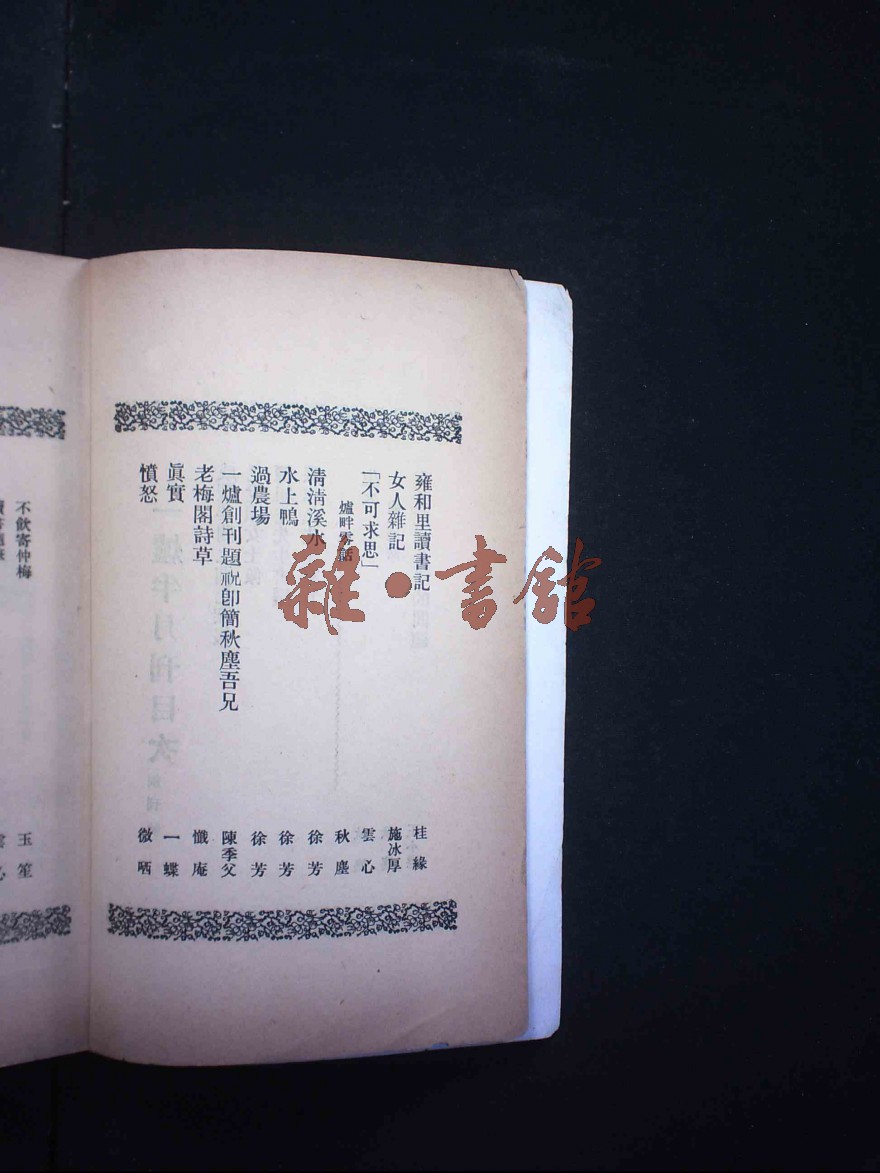 雍和里讀書記　桂緣
女人雜記　施冰厚
「不可求思」　雲心
爐畔零話　秋塵
淸淸溪水　徐芳
水上鴨　徐芳
過農場　徐芳
一爐創刊題祝卽簡秋塵吾兄　陳季父
老梅閣詩草　懺庵
眞實　一蝶
憤怒　微哂
不飲寄仲梅　玉笙
一爐半月刊目次
雜·書館